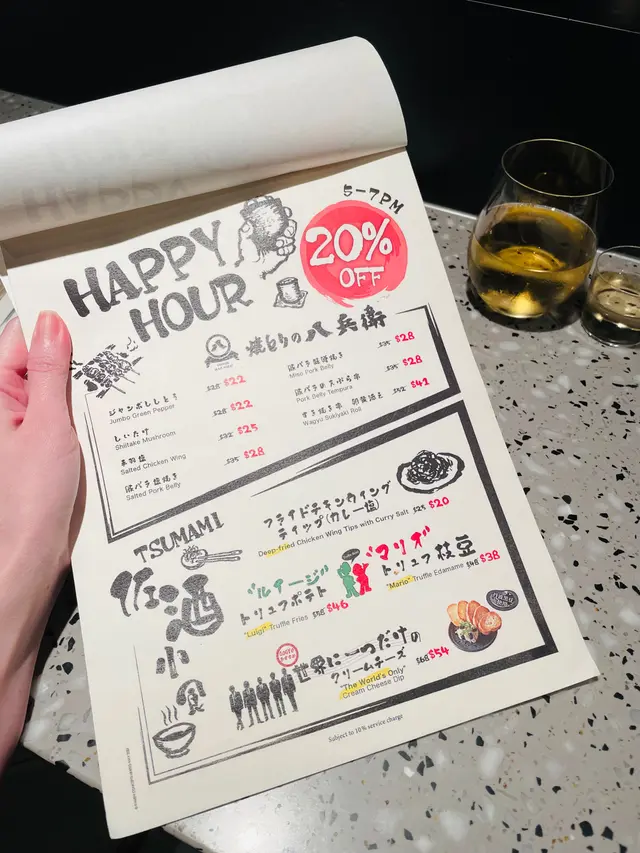 5-7PM
HAPPY
HOUR
20%
OFF
八
焼とりの八兵衛
ジャンボししとう
Jumbo Green Pepper
$28 $22
しいたけ
Shiitake Mushroom
$28 $22
手羽塩
Salted Chicken Wing
$32 $25
豚バラ塩焼き
Salted Pork Belly
$35 $28
豚バラ味噌焼き
Miso Pork Belly
$35 $28
豚バラの天ぷら串
Pork Belly Tempura
$35 $28
すき焼き串
Wagyu Sukiyaki Roll
$52 $42
TSUMAMI
佐酒小食
フライドチキンウィング
ティップ(カレー塩)
Deep-fried Chicken Wing Tips with Curry Salt $25 $20
"ルイージ"
トリュフポテト
"Luigi" Truffle Fries $58 $46
"マリオ"
トリュフ枝豆
"Mario" Truffle Edamame $48 $38
世界に一つだけの
クリームチーズ
"The World's Only"
Cream Cheese Dip
$68 $54
Subject to 10% service charge